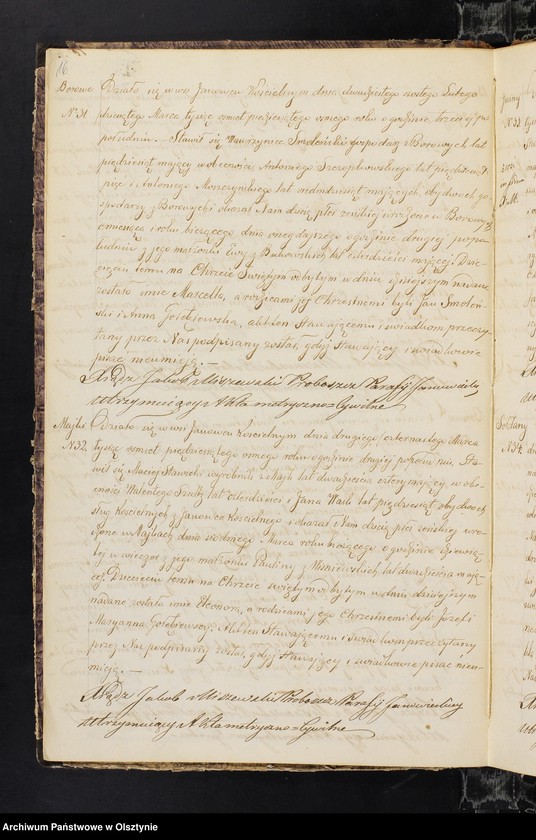 16
Borowe Działo się w wsi Janowcu Kościelnym dnia dwudziestego ósmego Lutego
No 31 dwunastego Marca tysiąc ośmset pięćdziesiątego ósmego roku o godzinie trzeciej po
południu. — Stawił się Wawrzyniec Smoleński gospodarz z Borowych lat
pięćdziesiąt mający w obecności Antoniego lat piędziesiąt
pięć i Antoniego lat siedmdziesiąt mających, obydwóch go-
spodarzy z Borowych i okazał Nam dziecię płci żeńskiej urodzone w Borowych
roku bieżącego dnia onegdajszego o godzinie drugiej popo-
łudniu z jego małżonki Ewy z lat czterdzieści mającej. Dzie-
cięciu temu na Chrzcie Świętym odbytym w dniu dzisiejszym nadane
zostało imie Marcella, a rodzicami jej Chrzestnemi byli Jan Smoleń-
ski i Anna akt ten Stawającemu i świadkom przeczy-
tany przez Nas podpisany został, gdyż Stawający i świadkowie
pisać nieumieją. —
Xiądz Jakub Miszewski Proboszcz Parafij Janowieckiej
Utrzymujący Akta metryczno-Cywilne
Majki Działo się w wsi Janowcu Kościelnym dnia drugiego czternastego Marca
No 32 tysiąc ośmset piędziesiątego ósmego roku o godzinie drugiej po południu, Sta-
wił się Maciej Sławecki wyrobnik z Majk lat dwadzieścia cztery mający w obe-
cności Walentego lat czterdzieści i Jana lat pięćdziesiąt obydwóch
sług kościelnych z Janowca Kościelnego i okazał Nam dziecię płci żeńskiej uro-
dzone w Majkach dnia Marca roku bieżącego o godzinie dziewią-
tej w wieczór z jego małżonki Pauliny z Wiśniewskich lat dwadzieścia mają-
cej. Dziecięciu temu na Chrzcie świętym odbytym w dniu dzisiejszym
nadane zostało imie a rodzicami jego Chrzestnemi byli Józef i
Maryanna Akt ten Stawającemu i świadkom przeczytany
przez Nas podpisany został, gdyż Stawający i świadkowie pisać nieu-
mieją. —
Xiądz Jakub Miszewski Proboszcz Parafij Janowieckiej
Utrzymujący Akta metryczno-Cywilne
No 33
Sołdany
No 34
Archiwum Państwowe w Olsztynie